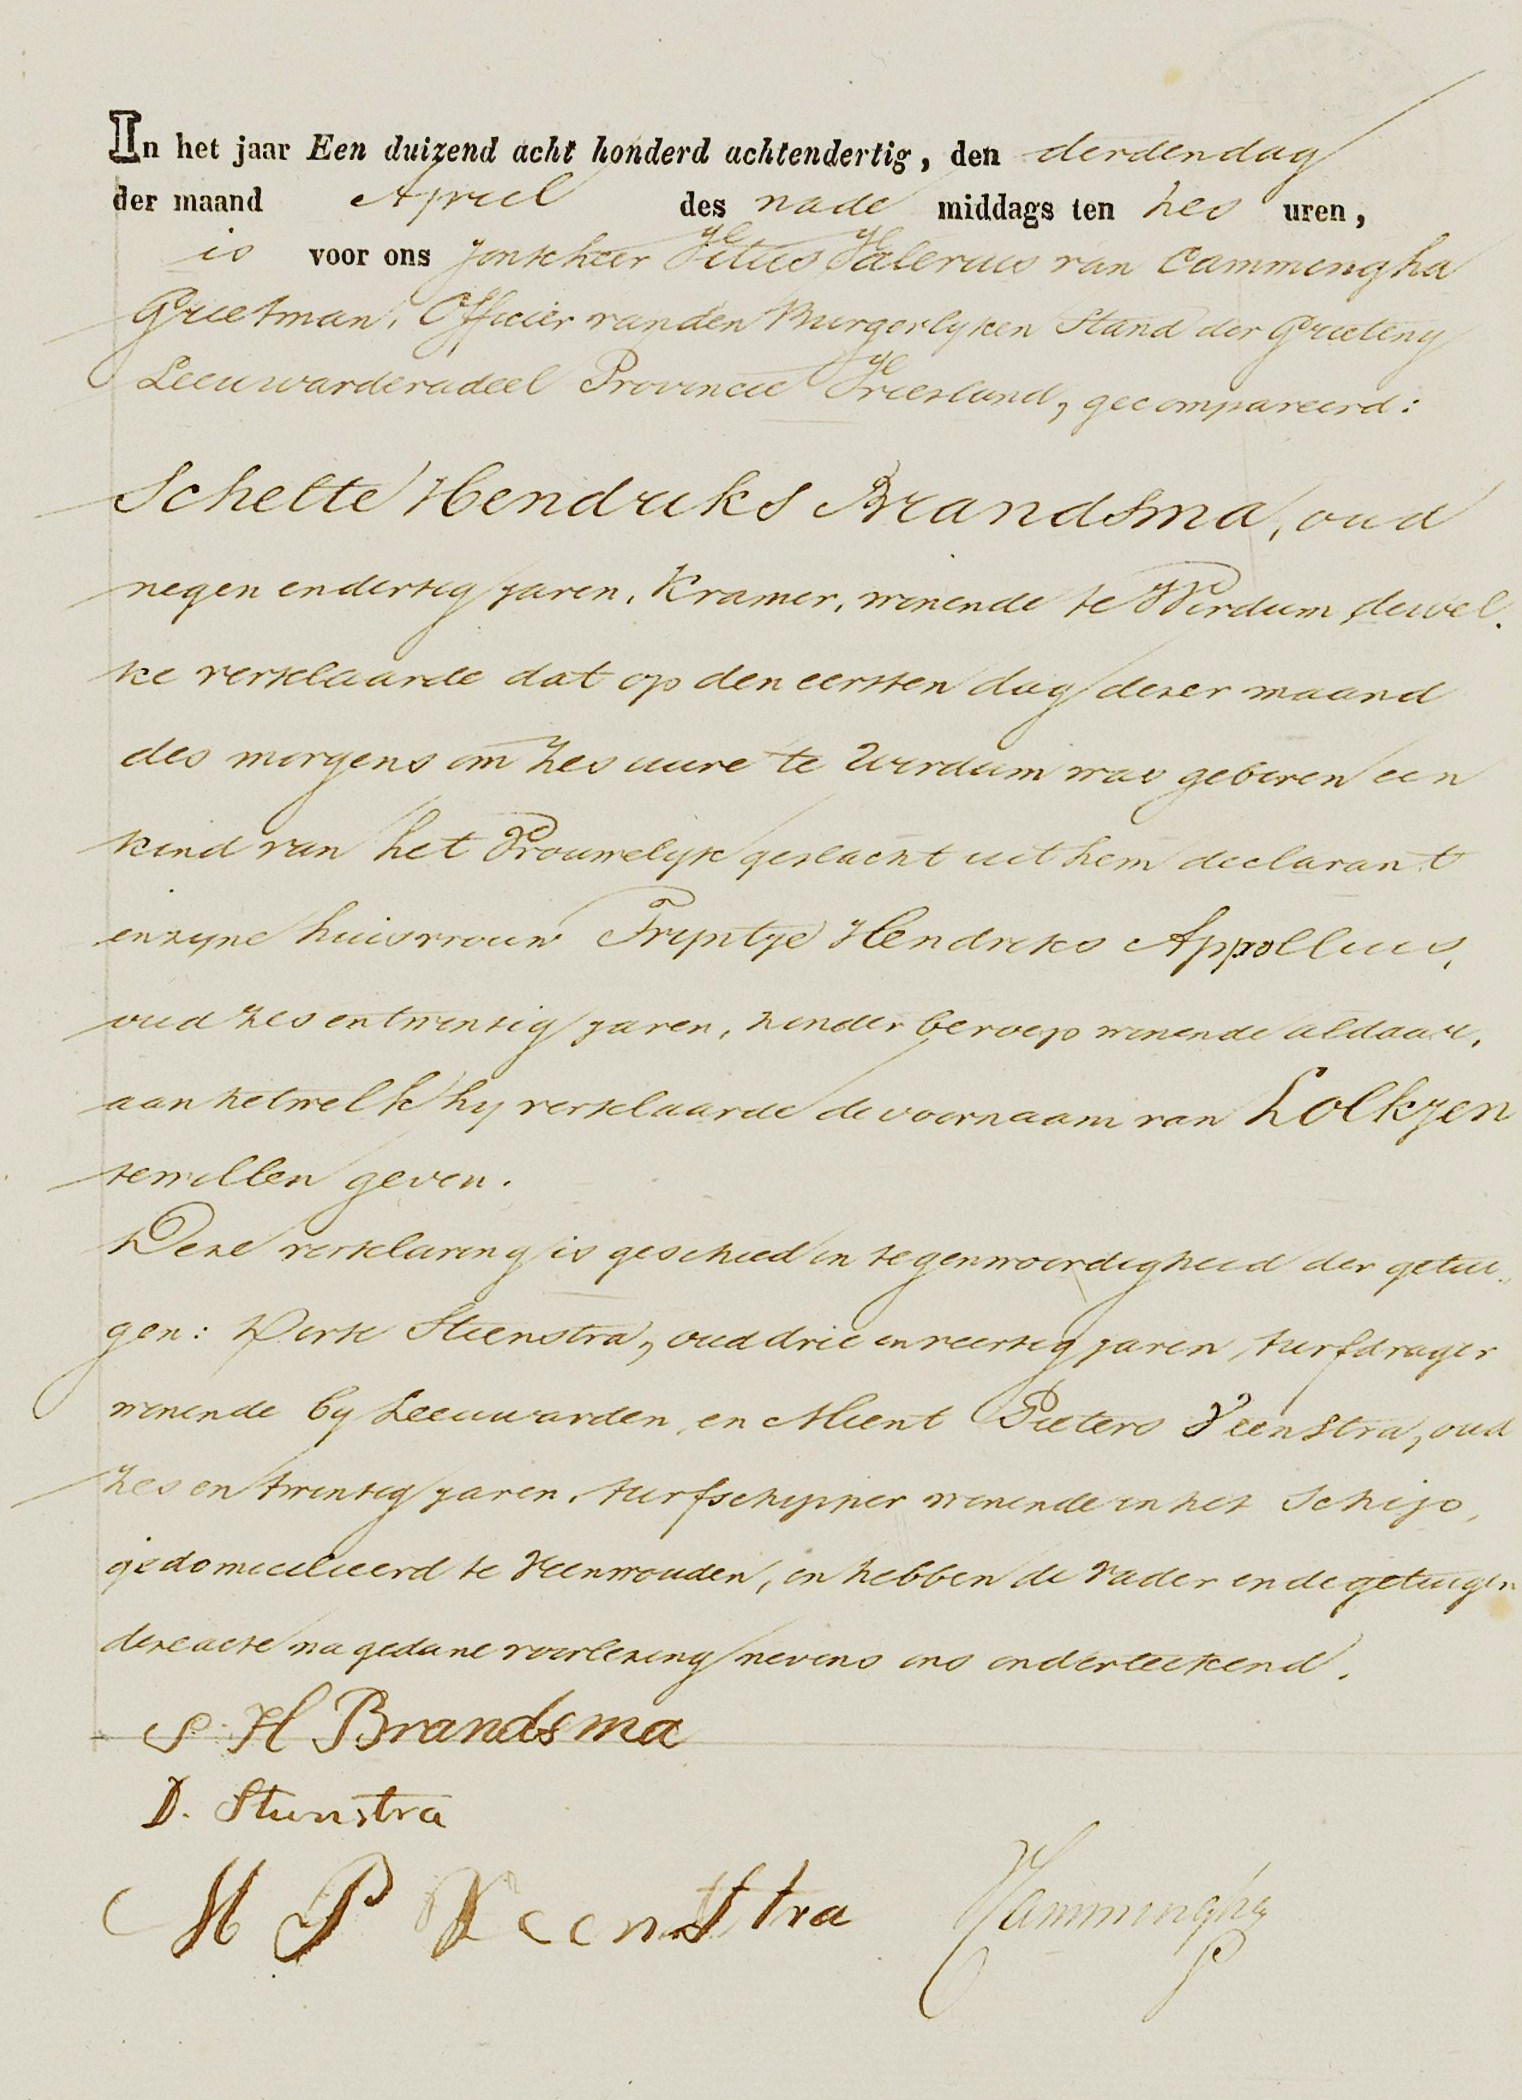 In het jaar Een duizend acht honderd achtendertig, den derdendag
der maand April des nade middags ten zes uren,
is voor ons Jonkheer Vitus Valerius van Cammengha
Grietman, Officier van den Burgerlyken Stand der Grieteny
Leeuwarderadeel Provincie Vriesland, gecompareerd:
Schelte Hendriks Brandsma, oud
negen en dertig jaren, Kramer, wonende te Wirdum, dewel-
ke verklaarde dat op den eersten dag dezer maand
des morgens om zes uure te Wirdum was geboren een
kind van het Vrouwelyk geslacht uit hem declarant
en zyne huisvrouw Tryntje Hendriks Appollius,
oud zes en twintig jaren, zonder beroep wonende aldaar,
aan hetwelk hy verklaarde de voornaam van Lolkjen
te willen geven.
Deze verklaring is geschied in tegenwoordigheid der getui-
gen: Dirk Steenstra, oud drie en veertig jaren, turfdrager
wonende by Leeuwarden, en Mient Pieters Veenstra, oud
zes en twintig jaren, turfschipper wonende in het Schip,
gedomicilieerd te Veenwouden, en hebben de vader en de getuigen
deze acte na gedane voorlezing nevens ons onderteekend.
S. H Brandsma
D. Steenstra
M P Veenstra
VCammingha